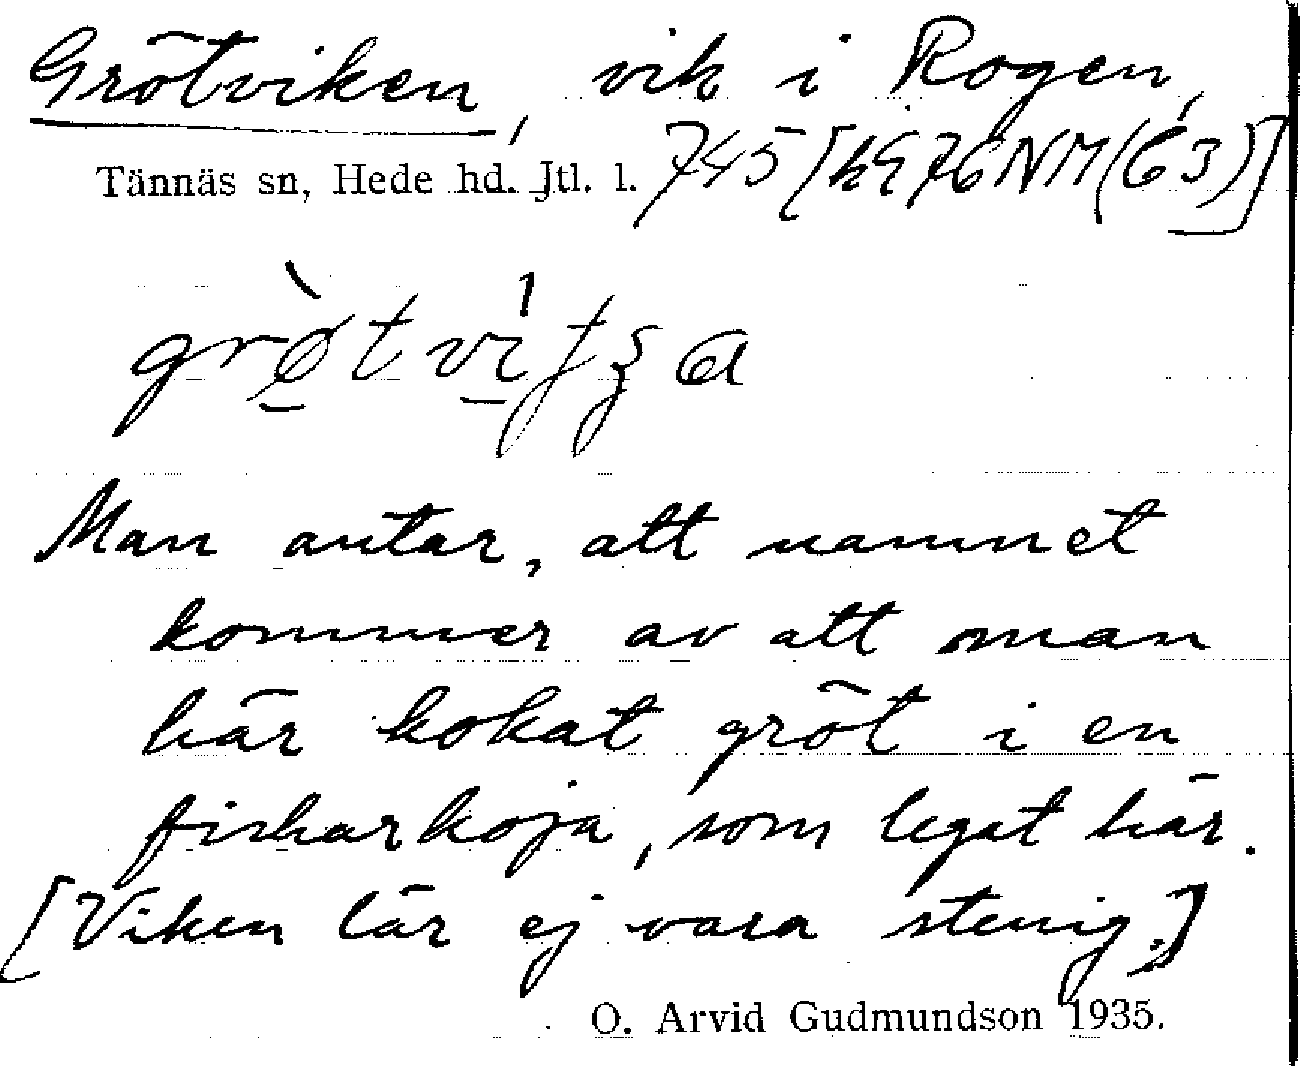 Grötviken, vik i Rogen,
Tännäs sn, Hede hd. Jtl. l. 745 [h976NM(63)]
Man antar, att namnet
kommer av att man
här kokat gröt i en
fiskarkoja, som legat här.
[Viken lär ej vara stenig.]
O. Arvid Gudmundson 1935.